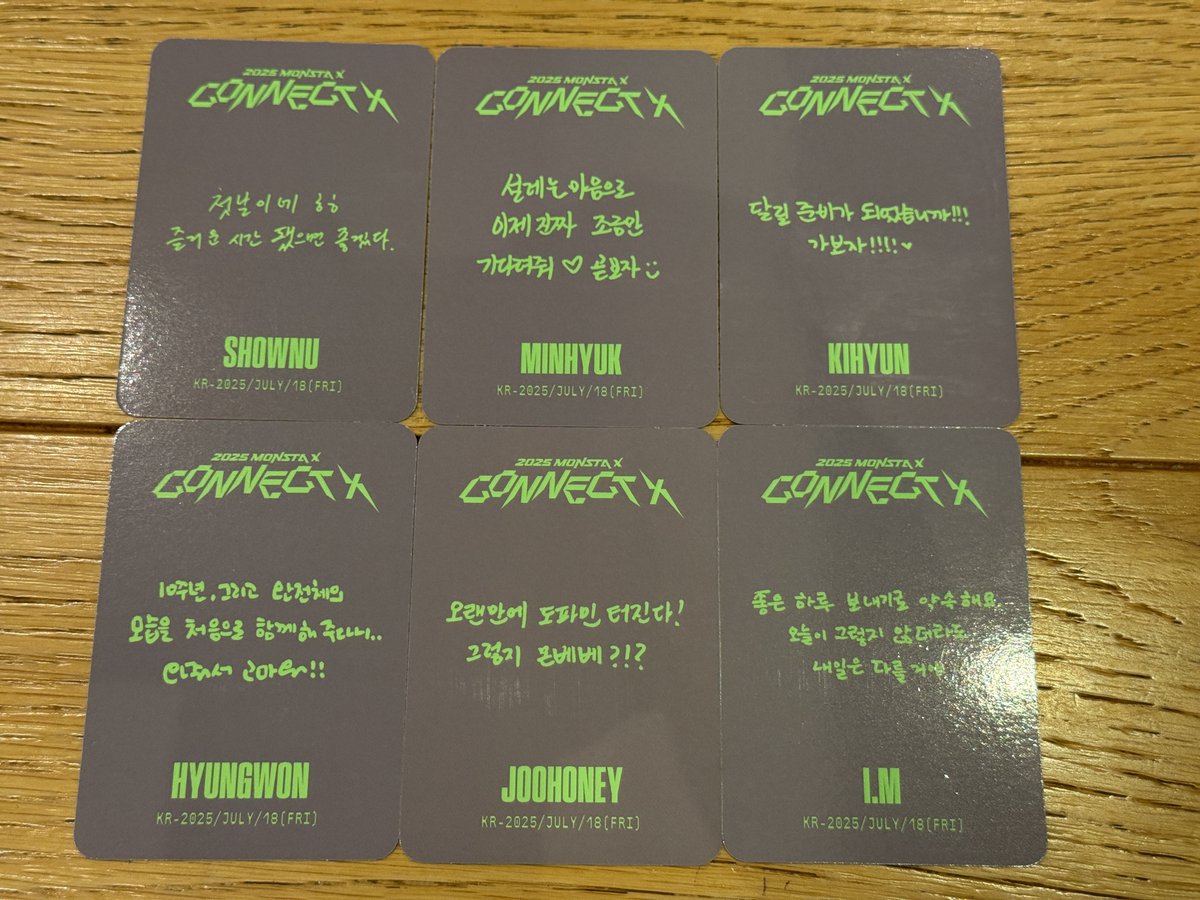 2025 MONSTA X
CONNECT X
첫날이네 ㅎㅎ
즐거운 시간 됐으면 좋겠다.
SHOWNU
KR-2025/JULY/18(FRI)
2025 MONSTA X
CONNECT X
설레는 마음으로
이제 진짜 조금만
기다려줘 ♡ 곧보자 :)
MINHYUK
KR-2025/JULY/18(FRI)
2025 MONSTA X
CONNECT X
달릴 준비가 되었습니까!!!
가보자!!!! ♥
KIHYUN
KR-2025/JULY/18(FRI)
2025 MONSTA X
CONNECT X
10주년, 그리고 완전체의
모습을 처음으로 함께해 주다니..
와줘서 고마워!!
HYUNGWON
KR-2025/JULY/18(FRI)
2025 MONSTA X
CONNECT X
오랜만에 도파민 터진다!
그렇지 몬베베?!?
JOOHONEY
KR-2025/JULY/18(FRI)
2025 MONSTA X
CONNECT X
좋은 하루 보내기로 약속해요.
오늘이 그렇지 않더라도
내일은 다를거야
I.M
KR-2025/JULY/18(FRI)